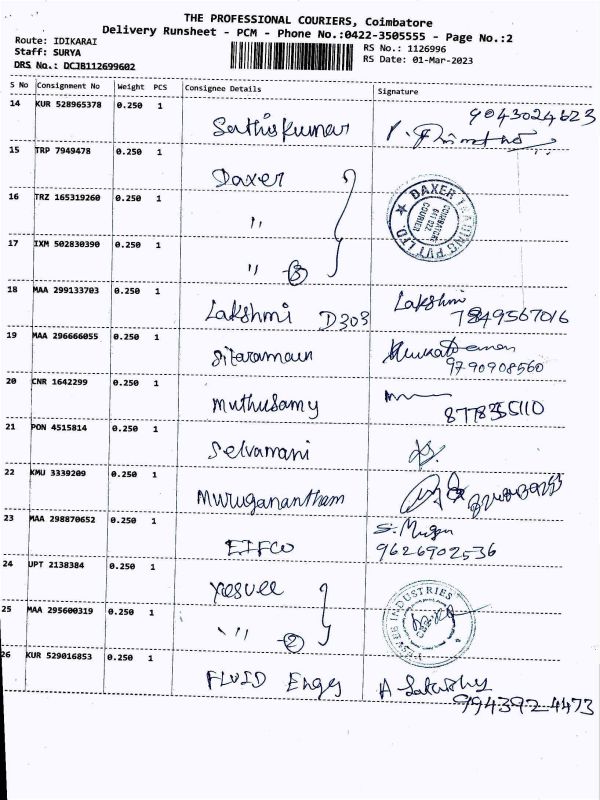 THE PROFESSIONAL COURIERS, Coimbatore
Delivery Runsheet - PCM - Phone No.:0422-3505555 - Page No.:2
Route: IDIKARAI
Staff: SURYA
DRS No.: DCJB112699602
RS No.: 1126996
RS Date: 01-Mar-2023
S No Consignment No Weight PCS Consignee Details Signature
14 KUR 528965378 0.250 1 Sathiskumar 9043024623
15 TRP 7949478 0.250 1 Daxer
16 TRZ 165319260 0.250 1 "
17 IXM 502830390 0.250 1 " 3
DAXER TRADING PVT LTD.
COIMBATORE
641 022
COURIER
18 MAA 299133703 0.250 1 Lakshmi D303 Lakshmi
7849567016
19 MAA 296666055 0.250 1 Sitaramaun
9790908560
20 CNR 1642299 0.250 1 Muthusamy
21 PON 4515814 0.250 1 Selvamani
22 KMU 3339209 0.250 1 Muruganantham
23 MAA 298870652 0.250 1 EIFCO S. Mugan
9626902536
24 UPT 2138384 0.250 1 Yesvee
25 MAA 295600319 0.250 1 " 2
YESVEE INDUSTRIES
26 KUR 529016853 0.250 1 FLUID Engg
9943924473